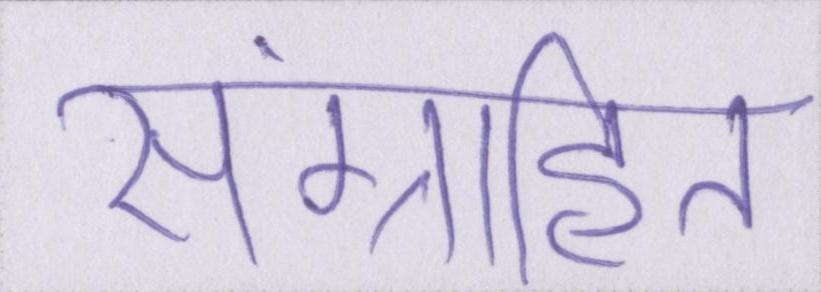 संग्राहित